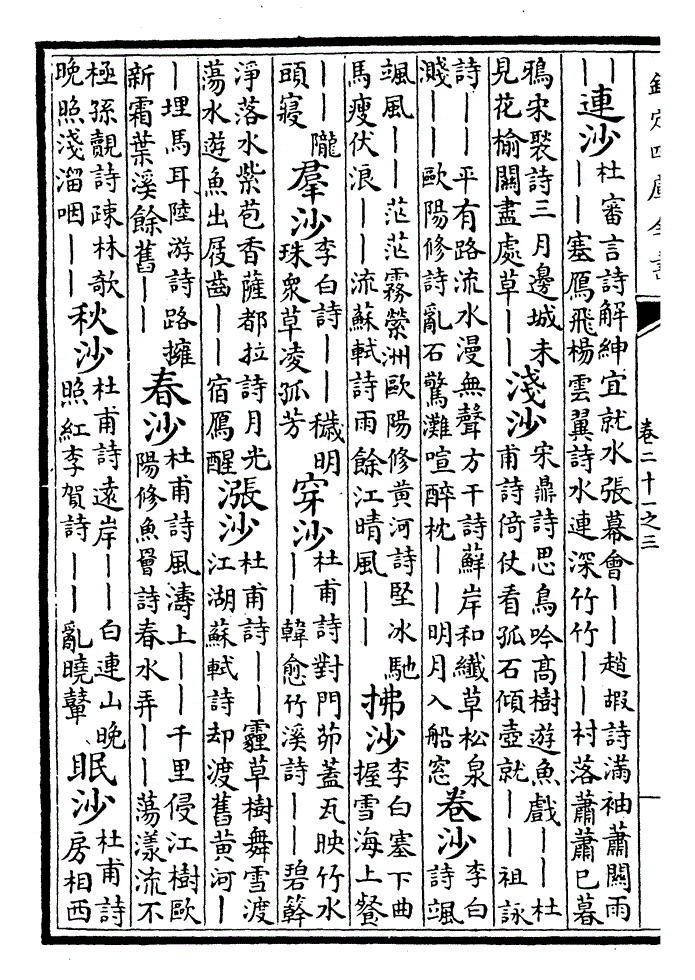 欽定四庫全書 卷二十一之三
——連沙杜審言詩解紳宜就水張幕會——趙嘏詩滿袖蕭關雨——塞鴈飛楊雲翼詩水連深竹竹——村落蕭蕭已暮
鴉宋褧詩三月邊城未見花榆關盡處草——淺沙宋鼎詩思鳥吟高樹遊魚戲——杜甫詩倚仗看孤石傾壺就——祖詠
詩——平有路流水漫無聲方干詩蘇岸和纖草松泉濺——歐陽修詩亂石驚灘喧醉枕——明月入船窓卷沙李白詩颯
颯風——茫茫霧縈洲歐陽修黃河詩堅冰馳馬瘦伏浪——流蘇軾詩雨餘江晴風——拂沙李白塞下曲握雪海上餐
——隴頭寢羣沙李白詩——穢明珠衆草凌孤芳穿沙杜甫詩對門茆蓋瓦映竹水——韓愈竹溪詩——碧簳
淨落水紫苞香薩都拉詩月光蕩水遊魚出屐齒——宿鴈醒漲沙杜甫詩——霾草樹舞雪渡江湖蘇軾詩却渡舊黃河—
—埋馬耳陸游詩路擁新霜葉溪餘舊——春沙杜甫詩風濤上——千里侵江樹歐陽修魚罾詩春水弄——蕩漾流不
極孫覿詩疎林欹晚照淺溜咽——秋沙杜甫詩遠岸——白連山晚照紅李賀詩——亂曉鼙眠沙杜甫詩房相西